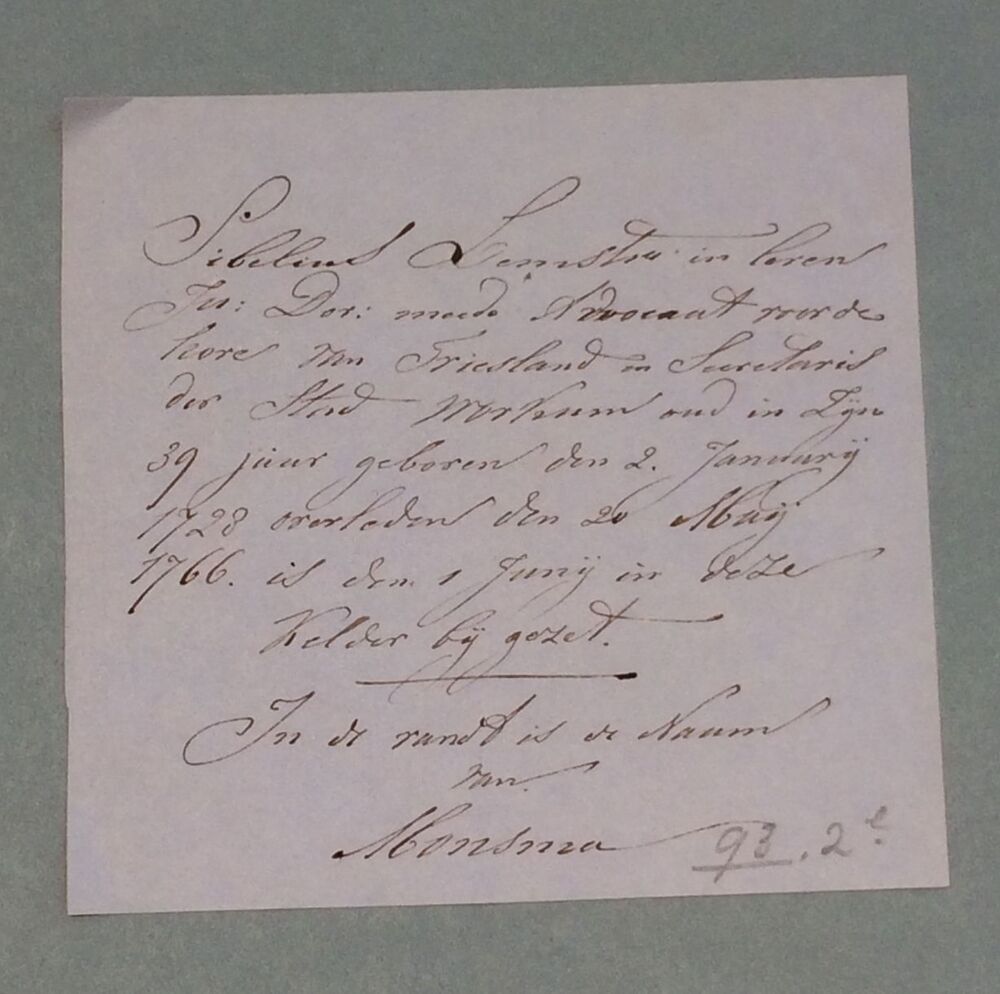 Sibelius Lemstra in leven
Ju: Dor: mede Advocaat voor de
hove van Friesland en Secretaris
der Stad Workum oud in Zijn
39 jaar geboren den 2. Januarij
1728 overleden den 20 Maij
1766. is den 1 Junij in deze
Kelder bij gezet.
In de randt is de Naam
van
Monsma
93. 2e